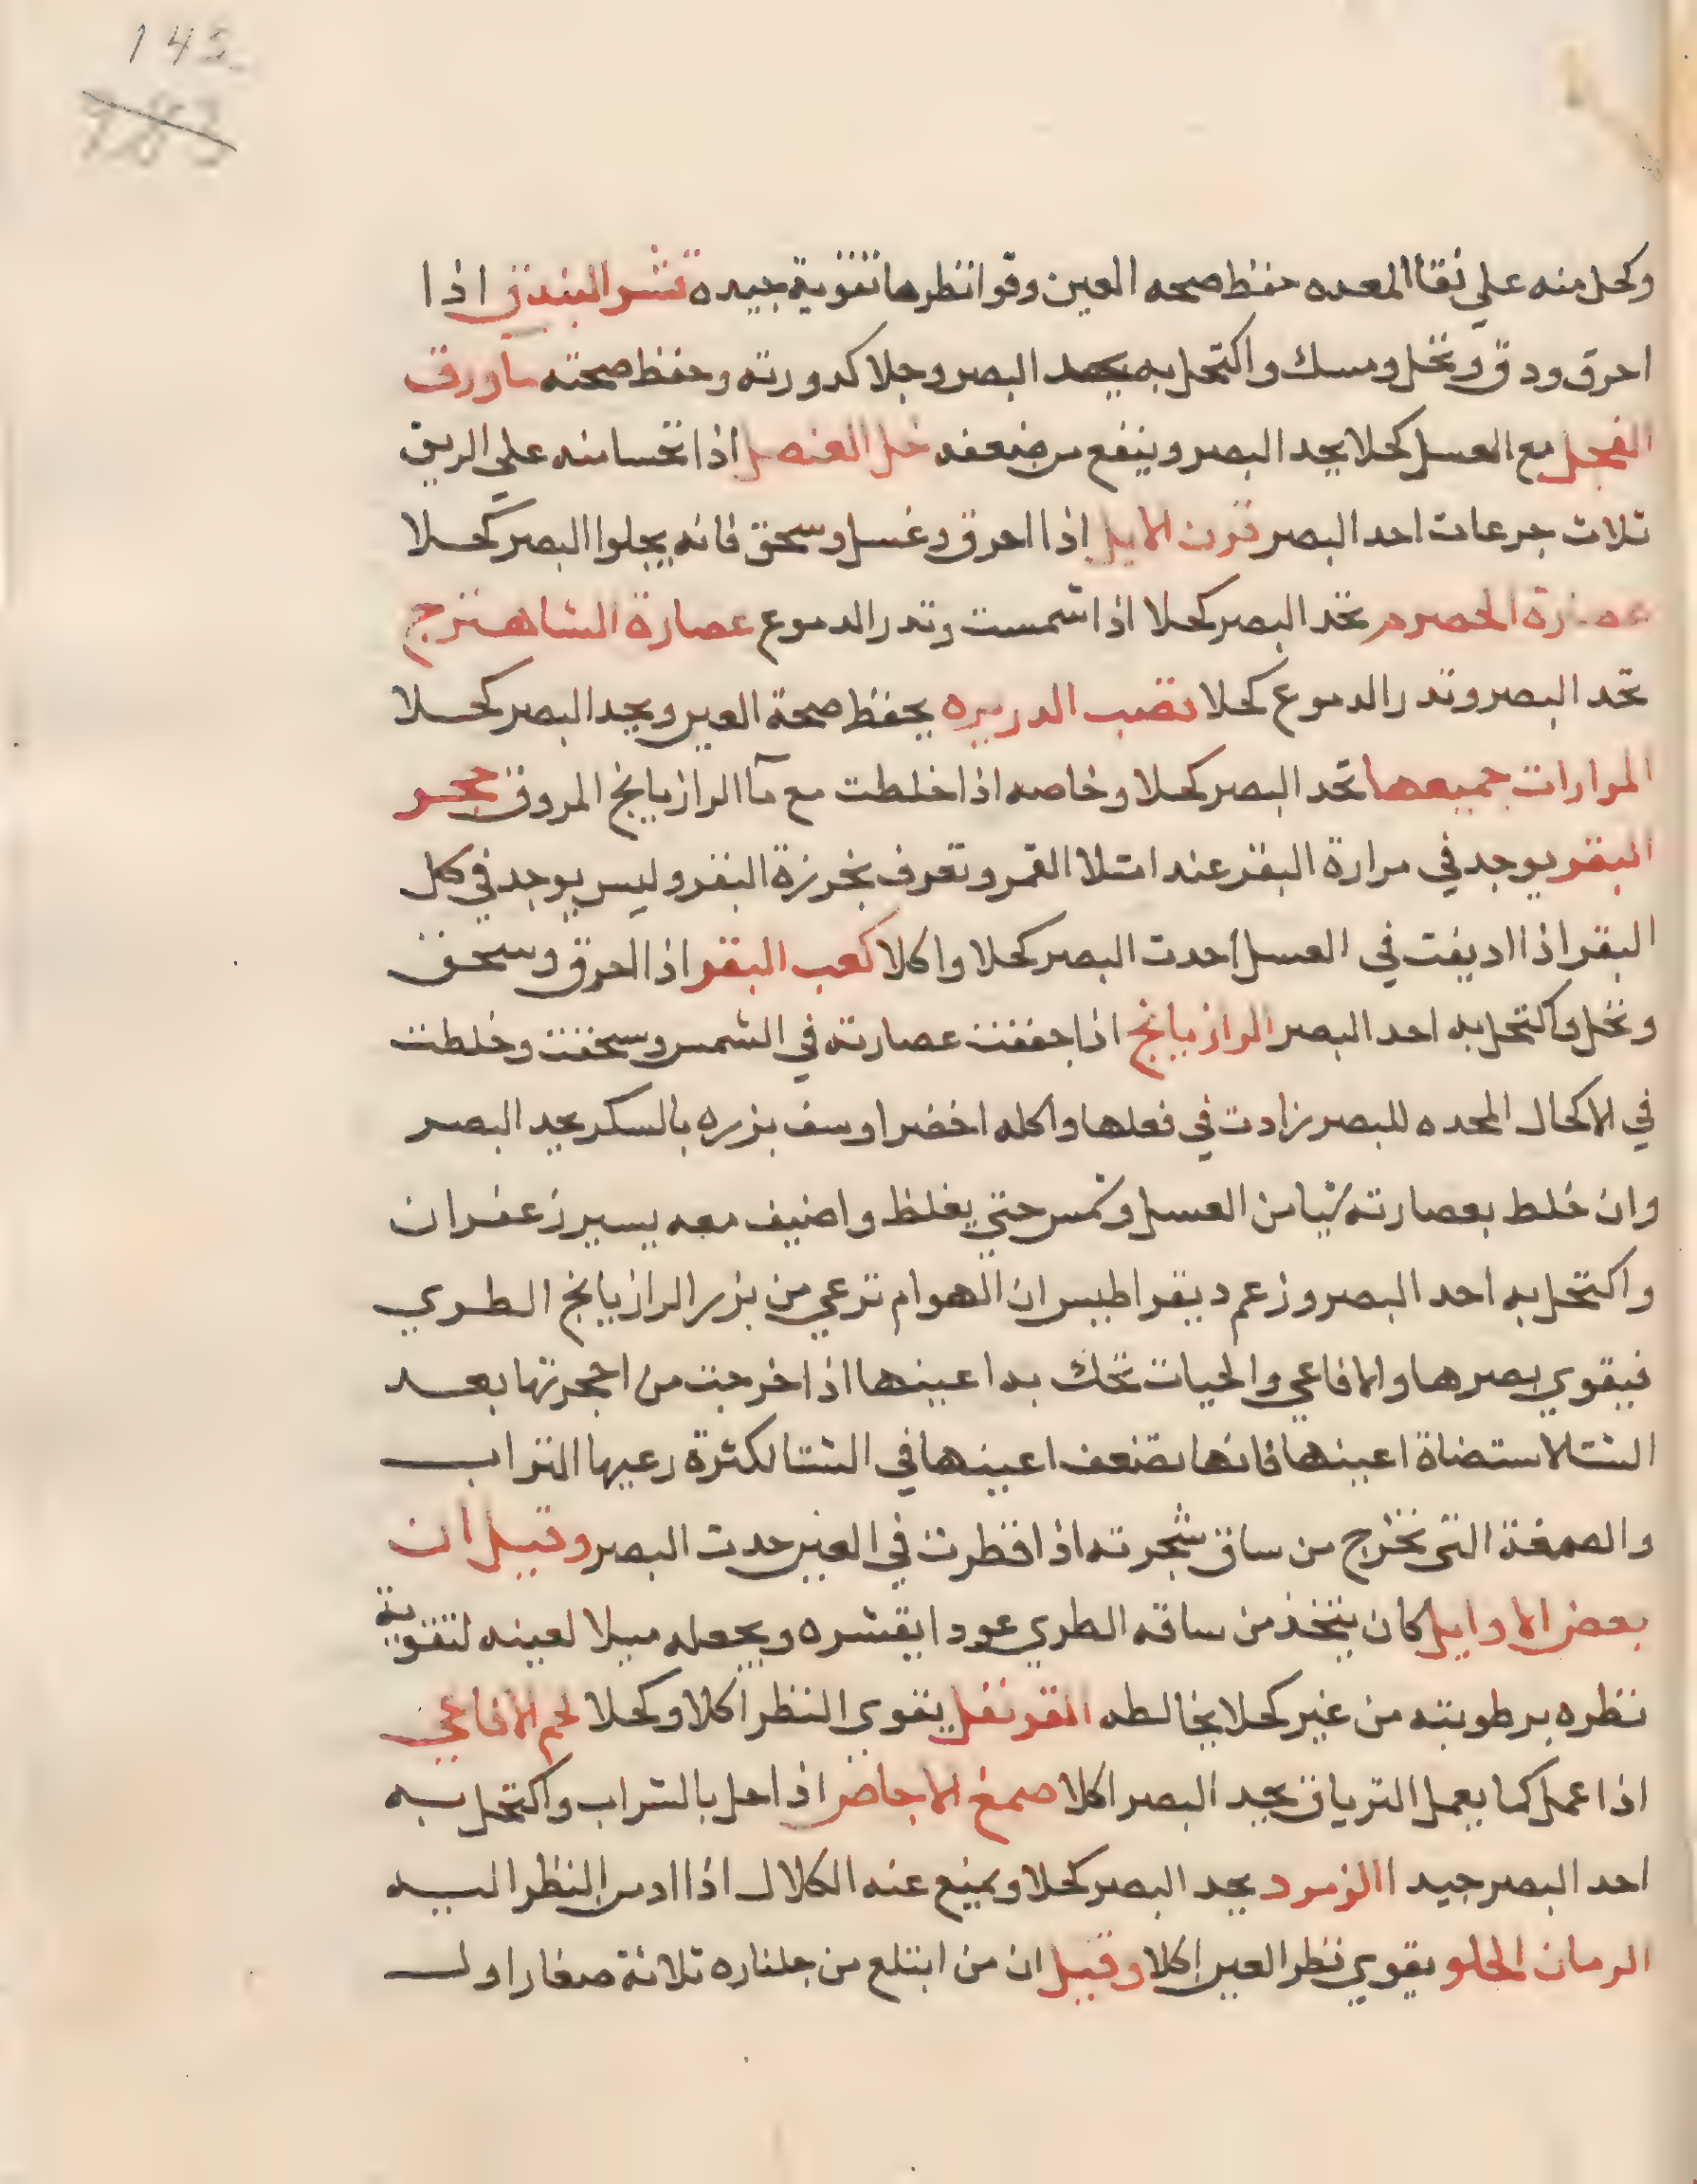 145
783
وكحل منه علي نقا المعده حفظ صحه العين وقوا نظرها تقوية جيده قشر البندق اذا
احرق ودق ونخل ومسك واكتحل به يحد البصر وجلا كدورته وحفظ صحته مآ ورق
الفجل مع العسل كحلا يحد البصر وينفع من ضعفه خل العنصل اذا تحسا منه علي الريق
ثلاث جرعات احد البصر قرن الايل اذا احرق وغسل وسحق فانه يجلوا البصر كحلا
عصارة الحصرم تحد البصر كحلا اذا شمست وتدر الدموع عصارة الشاهترج
تحد البصر وتدر الدموع كحلا قصب الدريره يحفظ صحة العين ويحد البصر كحلا
المرارات جميعها تحد البصر كحلا وخاصه اذا خلطت مع مآ الرازيانج المروق حجر
البقر يوجد في مرارة البقر عند امتلا القمر وتعرف بخرزة البقر وليس يوجد في كل
البقر اذا اديفت في العسل احدت البصر كحلا واكلا كعب البقر اذا احرق وسحق
ونخل واكتحل به احد البصر الرازيانج اذا جففت عصارته في الشمس وسحقت وخلطت
في الاكحال المحده للبصر زادت في فعلها واكله اخضر او سف بزره بالسكر يحد البصر
وان خلط بعصارته شيا من العسل وشمس حتي يغلظ واضيف معه يسير زعفران
واكتحل به احد البصر وزعم ديقراطيس ان الهوام ترعي من بزر الرازيانج الطري
فيقوي بصرها والافاعي والحيات تحك به اعينها اذا خرجت من احجرتها بعد
الشتا لاستضاة اعينها فانها تضعف اعينها في الشتا لكثرة رعيها التراب
والصمغة التي تخرج من ساق شجرته اذا قطرت في العين حدت البصر وقيل ان
بعض الاوايل كان يتخذ من ساقه الطري عودا يقشره ويجعله ميلا لعينه لتقوية
نظره برطوبته من غير كحلا يخالطه القرنفل يقوي النظر اكلا وكحلا لحم الافاعي
اذا عمل كما يعمل الترياق يحد البصر اكلا صمغ الاجاص اذا حل بالشراب واكتحل به
احد البصر جيدا الزمرد يحد البصر كحلا ويمنع عنه الكلال اذا ادمن النظر اليه
الرمان الحلو يقوي نظر العين اكلا وقيل ان من ابتلع من جلناره ثلاثة صغار اول